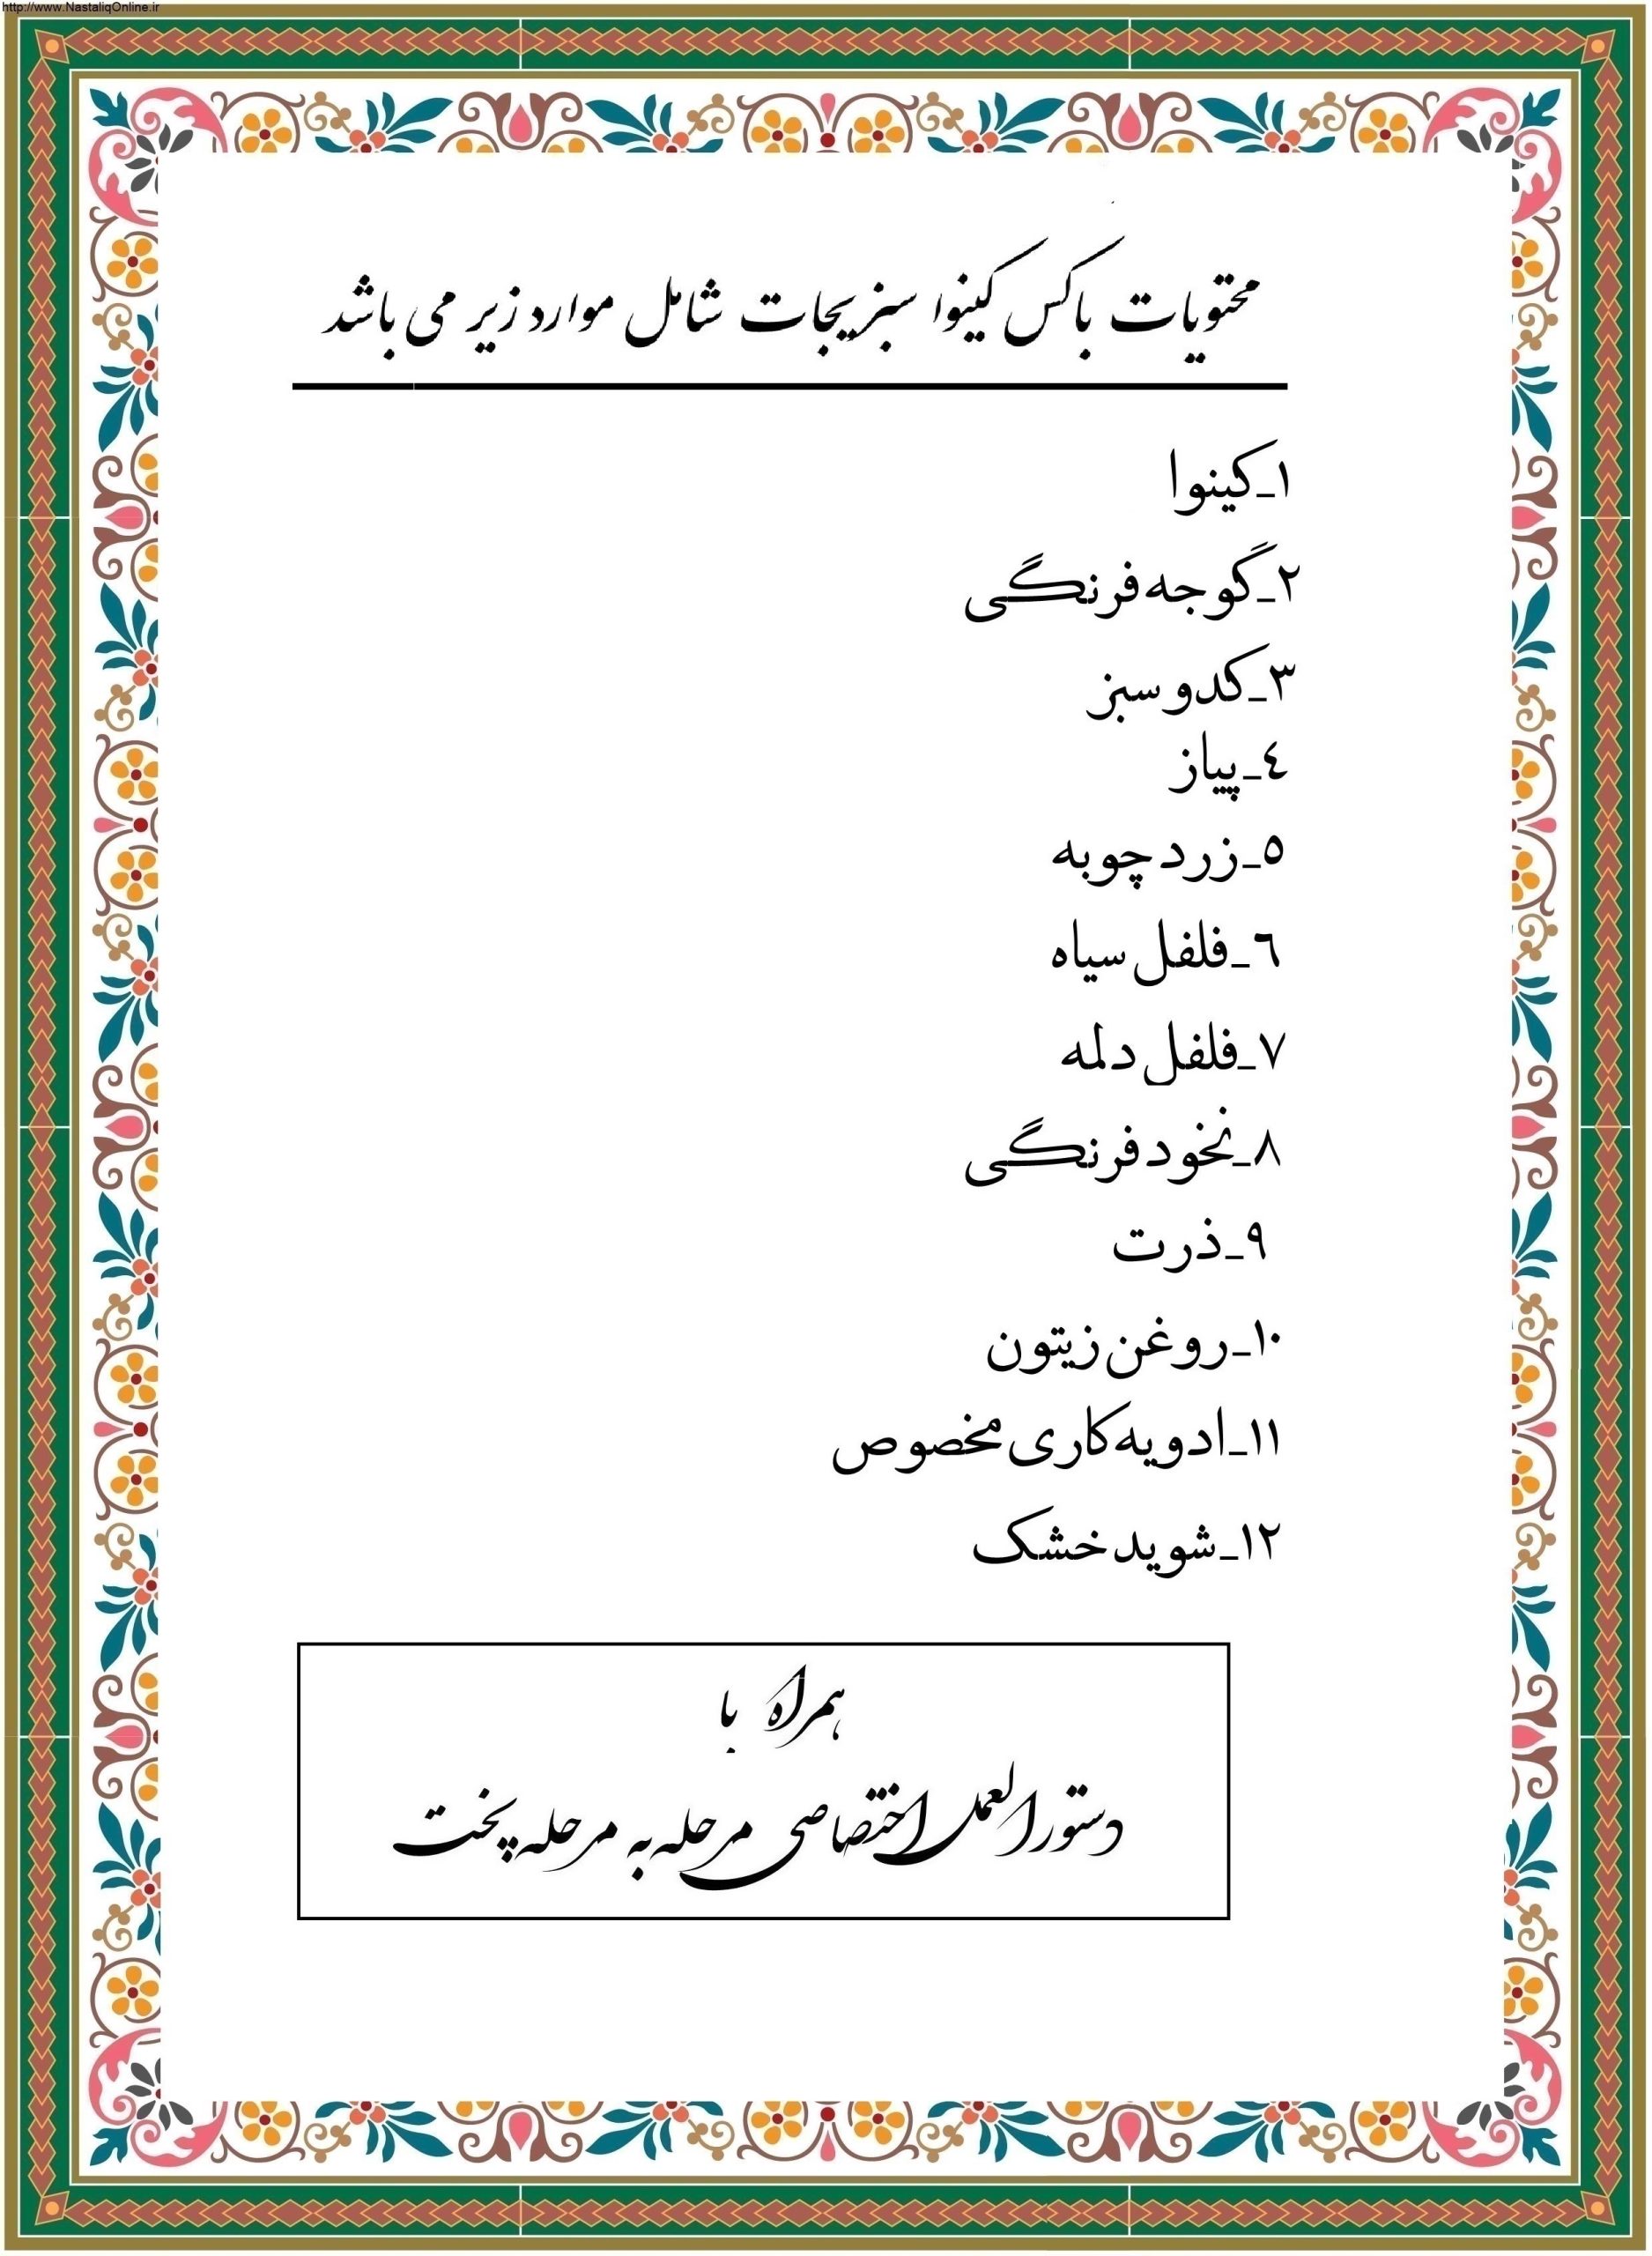 http://www.NastaliqOnline.ir
محتویات باکس کینوا سبزیجات شامل موارد زیر می باشد
١_کینوا
٢_گوجه فرنگی
٣_کدو سبز
٤_پیاز
٥_زردچوبه
٦_فلفل سیاه
٧_فلفل دلمه
٨_نخود فرنگی
٩_ذرت
١٠_روغن زیتون
١١_ادویه کاری مخصوص
١٢_شوید خشک
همراه با
دستورالعمل اختصاصی مرحله به مرحله پخت